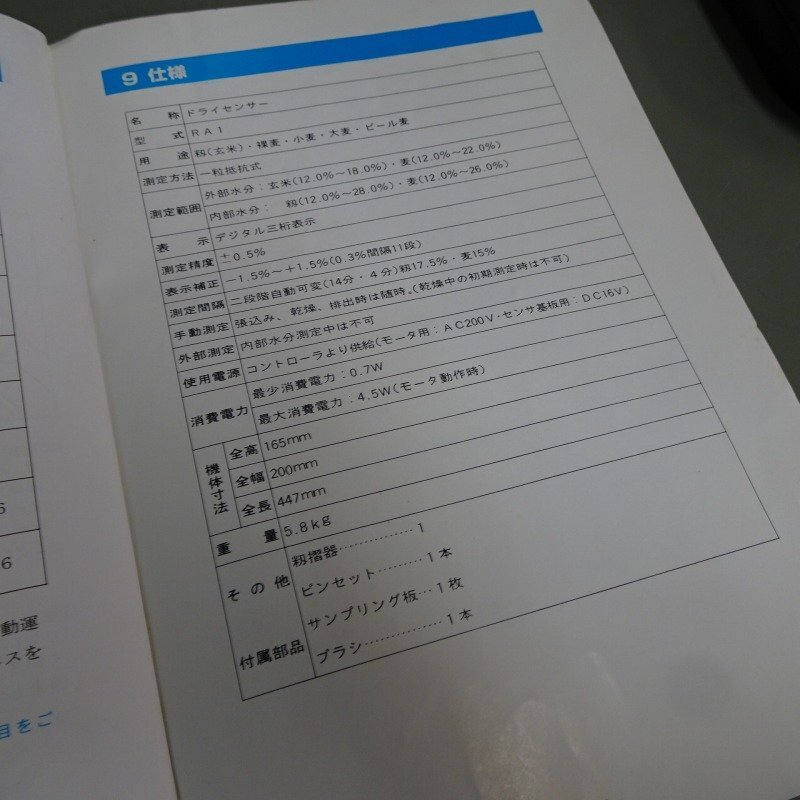 9 仕様
名称 ドライセンサー
型式 RA1
用途 籾(玄米)・裸麦・小麦・大麦・ビール麦
測定方法 一粒抵抗式
測定範囲 外部水分:玄米(12.0%~18.0%)・麦(12.0%~22.0%)
内部水分: 籾(12.0%~28.0%)・麦(12.0%~26.0%)
表示 デジタル三桁表示
測定精度 ±0.5%
表示補正 -1.5%~+1.5%(0.3%間隔11段)
測定間隔 二段階自動可変(14分・4分)籾17.5%・麦15%
手動測定 張込み、乾燥、排出時は随時。(乾燥中の初期測定時は不可)
外部測定 内部水分測定中は不可
使用電源 コントローラより供給(モータ用:AC200V・センサ基板用:DC16V)
消費電力 最少消費電力:0.7W
最大消費電力:4.5W(モータ動作時)
機体寸法 全高 165mm
全幅 200mm
全長 447mm
重量 5.8kg
その他 籾摺器……………1
ピンセット………1本
サンプリング板…1枚
付属部品 ブラシ……………1本
6
6
動運
スを
目をご